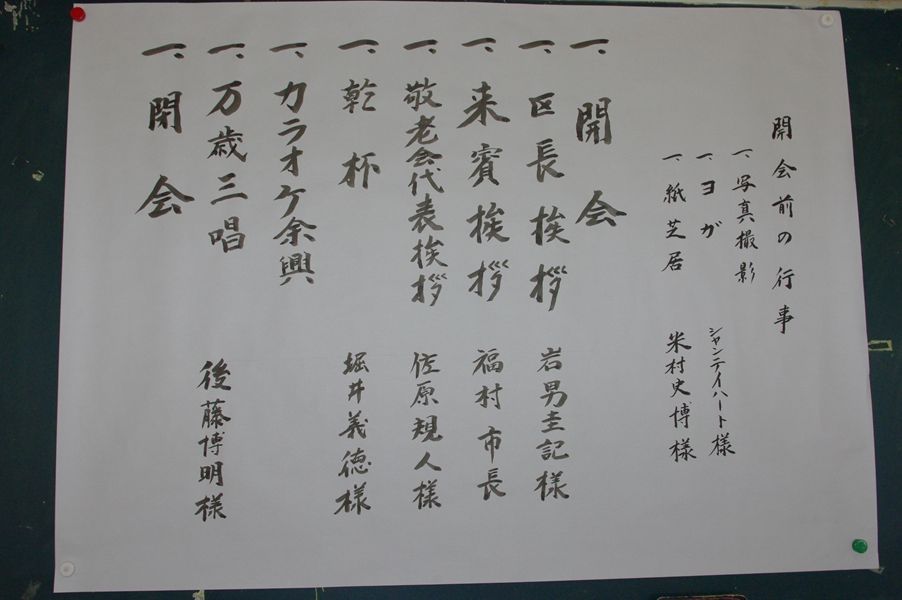 開会前の行事
一、写真撮影
一、ヨガ シャンティハート様
一、紙芝居 米村史博様
一、開会
一、区長挨拶 岩男圭記様
一、来賓挨拶 福村市長
一、敬老会代表挨拶 佐原規人様
一、乾杯 堀井義徳様
一、カラオケ余興
一、万歳三唱 後藤博明様
一、閉会